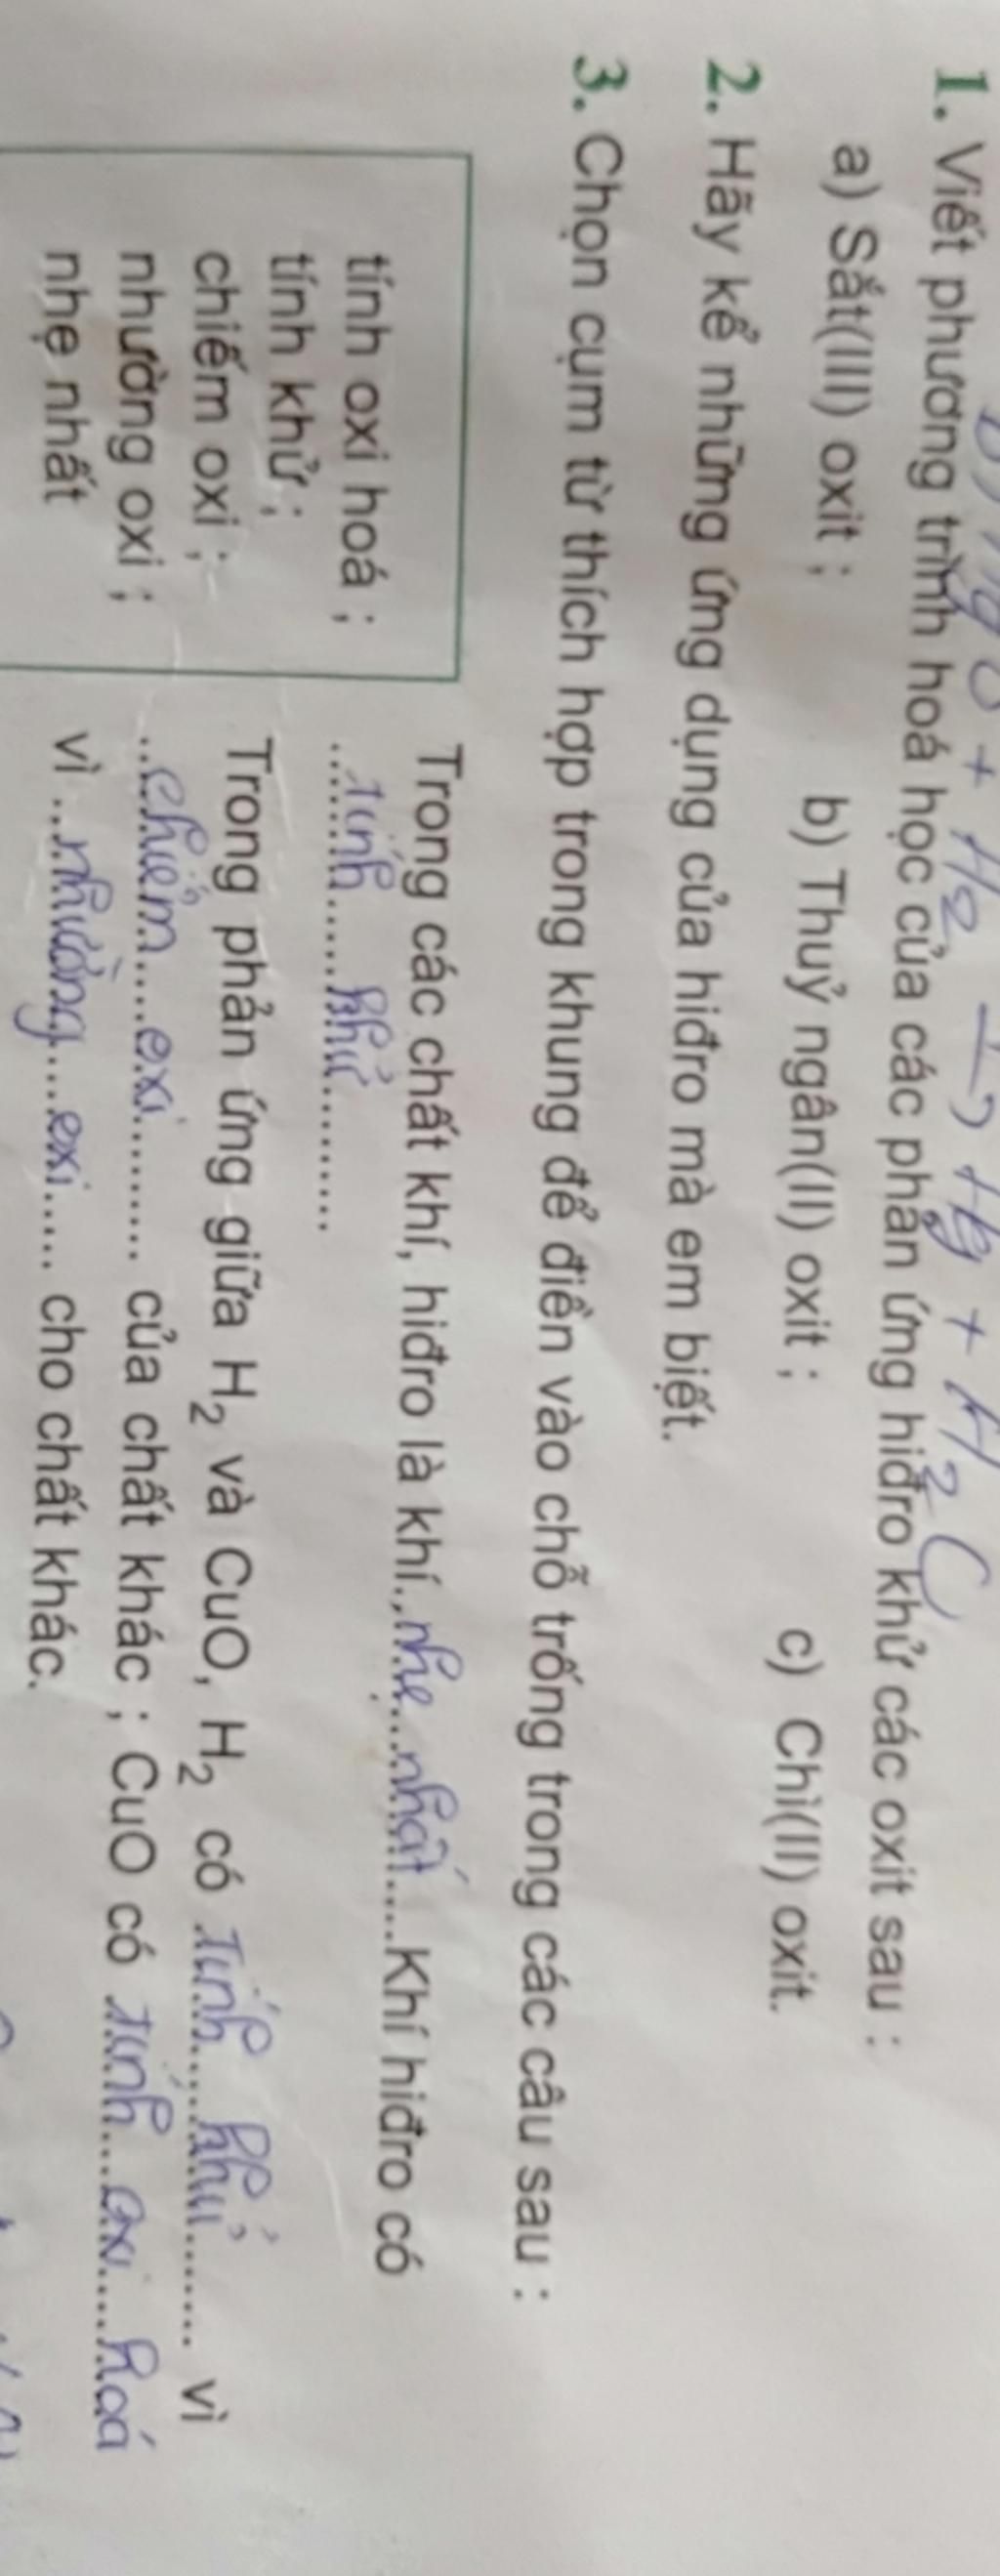 HgO + H2 → Hg + H2O
1. Viết phương trình hoá học của các phản ứng hiđro khử các oxit sau :
a) Sắt(III) oxit ; b) Thuỷ ngân(II) oxit ; c) Chì(II) oxit.
2. Hãy kể những ứng dụng của hiđro mà em biết.
3. Chọn cụm từ thích hợp trong khung để điền vào chỗ trống trong các câu sau :
tính oxi hoá ;
tính khử ;
chiếm oxi ;
nhường oxi ;
nhẹ nhất
Trong các chất khí, hiđro là khí..nhẹ...nhất....Khí hiđro có
.....tính.....khử..........
Trong phản ứng giữa H2 và CuO, H2 có tính.....khử....... vì
...chiếm....oxi......... của chất khác ; CuO có tính...oxi....hoá
vì ...nhường....oxi..... cho chất khác.